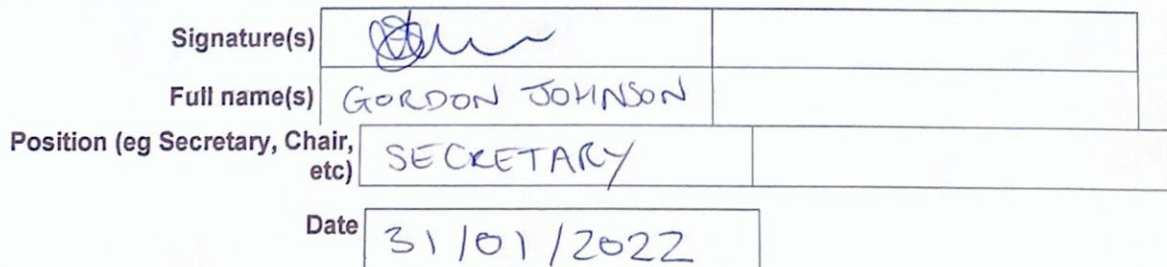 Signature(s)
Full name(s) GORDON JOHNSON
Position (eg Secretary, Chair,
etc) SECRETARY
Date 31/01/2022